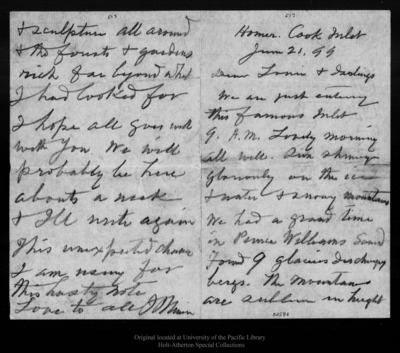 Homer. Cook Inlet
June 21, 99
Dear Louie & Darlings
We are just entering
this famous Inlet
9. A.M. Lovely morning
all well. Sun shining
gloriously on the ice
& water & snowy mountains
We had a grand time
in Prince Williams Sound
Found 9 glaciers discharging
bergs. The Mountains
are sublime in height
& sculpture all around
& the forests & gardens
rich far beyond what
I had looked for
I hope all goes well
with you. We will
probably be here
about a week
& I'll write again
This unexpected chance
I am using for
this hasty note
Love to all J Muir
Original located at University of the Pacific Library
Holt-Atherton Special Collections